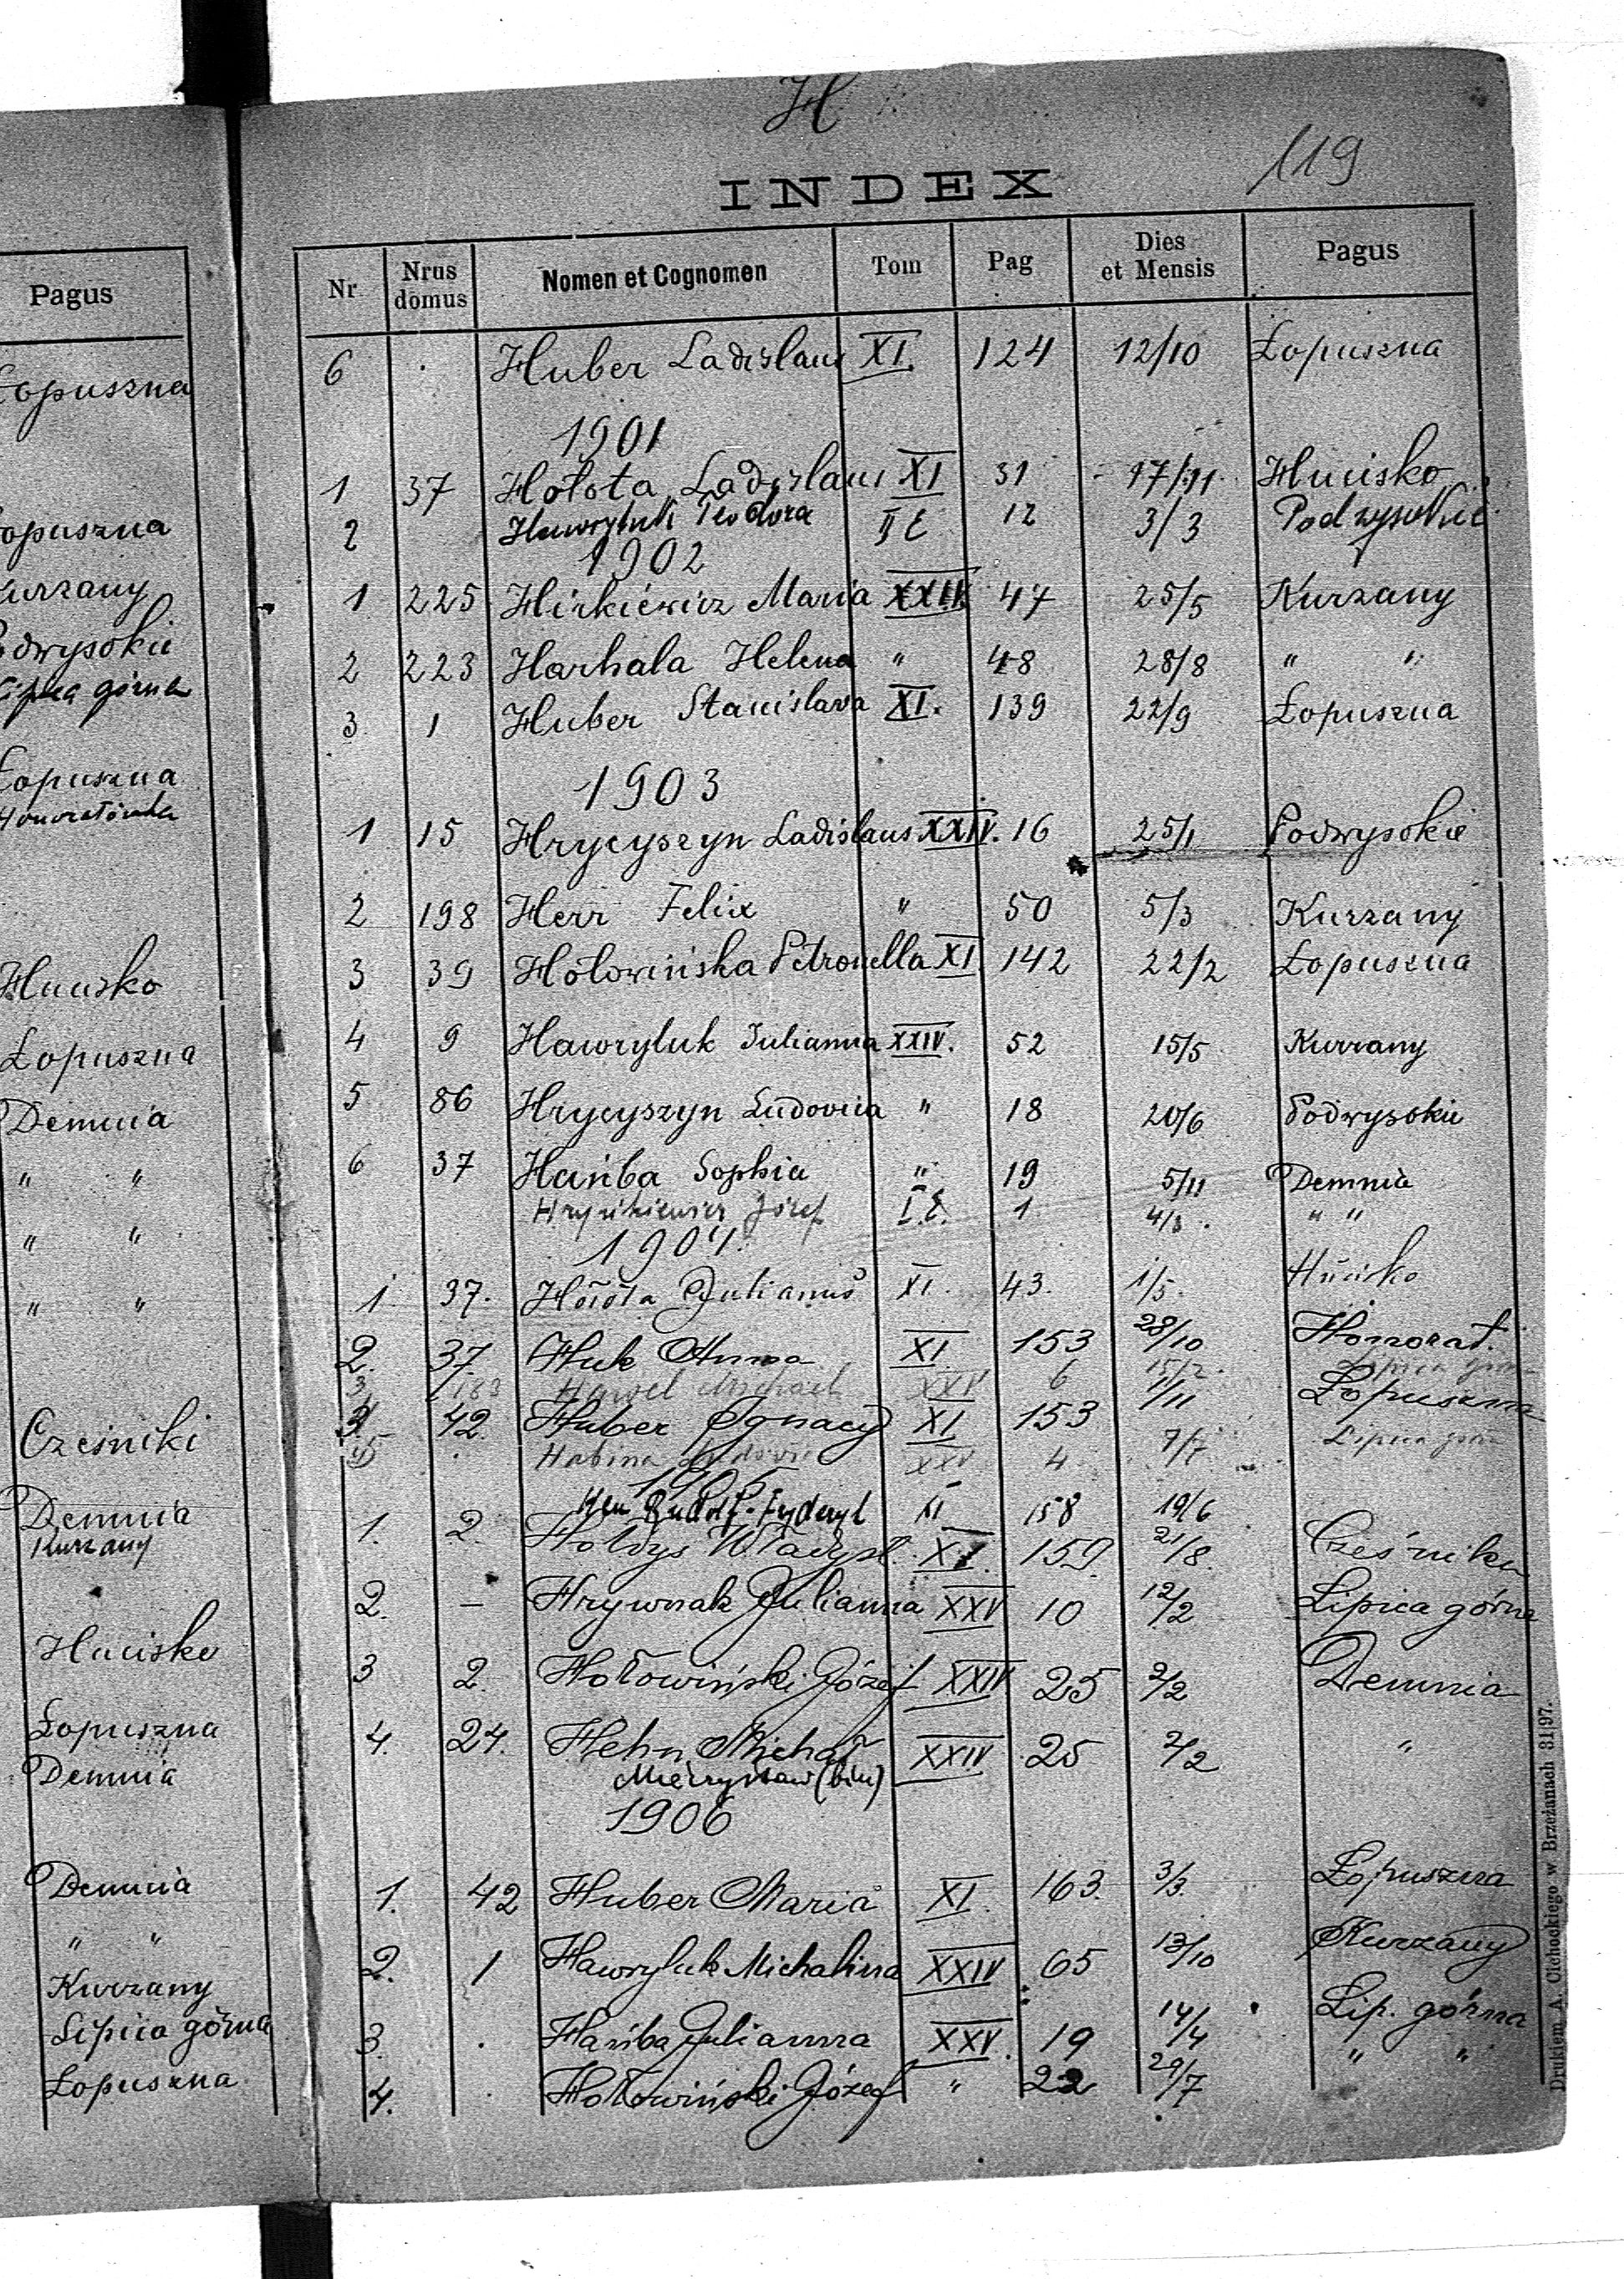 H
119
INDEX
Pagus
Nr Nrus domus Nomen et Cognomen Tom Pag Dies et Mensis Pagus
Łopuszna
6 . Huber Ladislaus XI. 124 12/10 Łopuszna
1901
1 37 Hołota Ladislaus XI 31 17/11 Hucisko
Łopuszna
2 Hawryluk Teodora II E 12 3/3 Podwysokie
1902
Kurzany
1 225 Hirkiewicz Maria XXIV 47 25/5 Kurzany
Podwysokie
2 223 Harhala Helena " 48 28/8 " "
Lipica górna
3. 1 Huber Stanislava XI. 139 22/9 Łopuszna
Łopuszna
1903
Honoratówka
1 15 Hrycyszyn Ladislaus XXIV. 16 25/1 Podwysokie
2 198 Herr Felix " 50 5/3 Kurzany
Hucisko
3 39 Hołowińska Petronella XI 142 22/2 Łopuszna
Łopuszna
4 9 Hawryluk Julianna XXIV. 52 15/5 Kurzany
Demnia
5 86 Hrycyszyn Ludovica " 18 20/6 Podwysokie
" "
6 37 Hańba Sophia " 19 5/11 Demnia
Józef I.E. 1 4/8 " "
" "
1904.
" "
1 37. Hołota Julianus XI. 43. 1/5. Hucisko
2. 37. Huk Anna XI 153 28/10 Honorat.
3 183 Michael XXV 6 15/2
42. Huber Ignacy XI 153 1/11 Łopuszna
Cześniki
Habina XXV 4 7/7 Lipica
1905
Rudolf XI 158 19/6
Demnia
1. 2. Hołdys Władysł. XI. 159 21/8. Cześniki
Kurzany
2. – Hrywnak Julianna XXV 10 12/2 Lipica górna
Hucisko
3 2. Hołowiński Józef XXIV 25 2/2 Demnia
Łopuszna
4. 24. Hehn Michał XXIV 25 2/2 "
Demnia
Mieczysław (bin)
1906
Demnia
1. 42 Huber Maria XI. 163. 3/3. Łopuszna
" "
2. 1 Hawryluk Michalina XXIV 65 13/10 Kurzany
Kurzany
Lipica górna
3. . Hańba Julianna XXV. 19 14/4 Lip. górna
Łopuszna
4. . Hołowiński Józef " 22 29/7 " "
Drukiem A. Cichockiego w Brzeżanach 31|97.